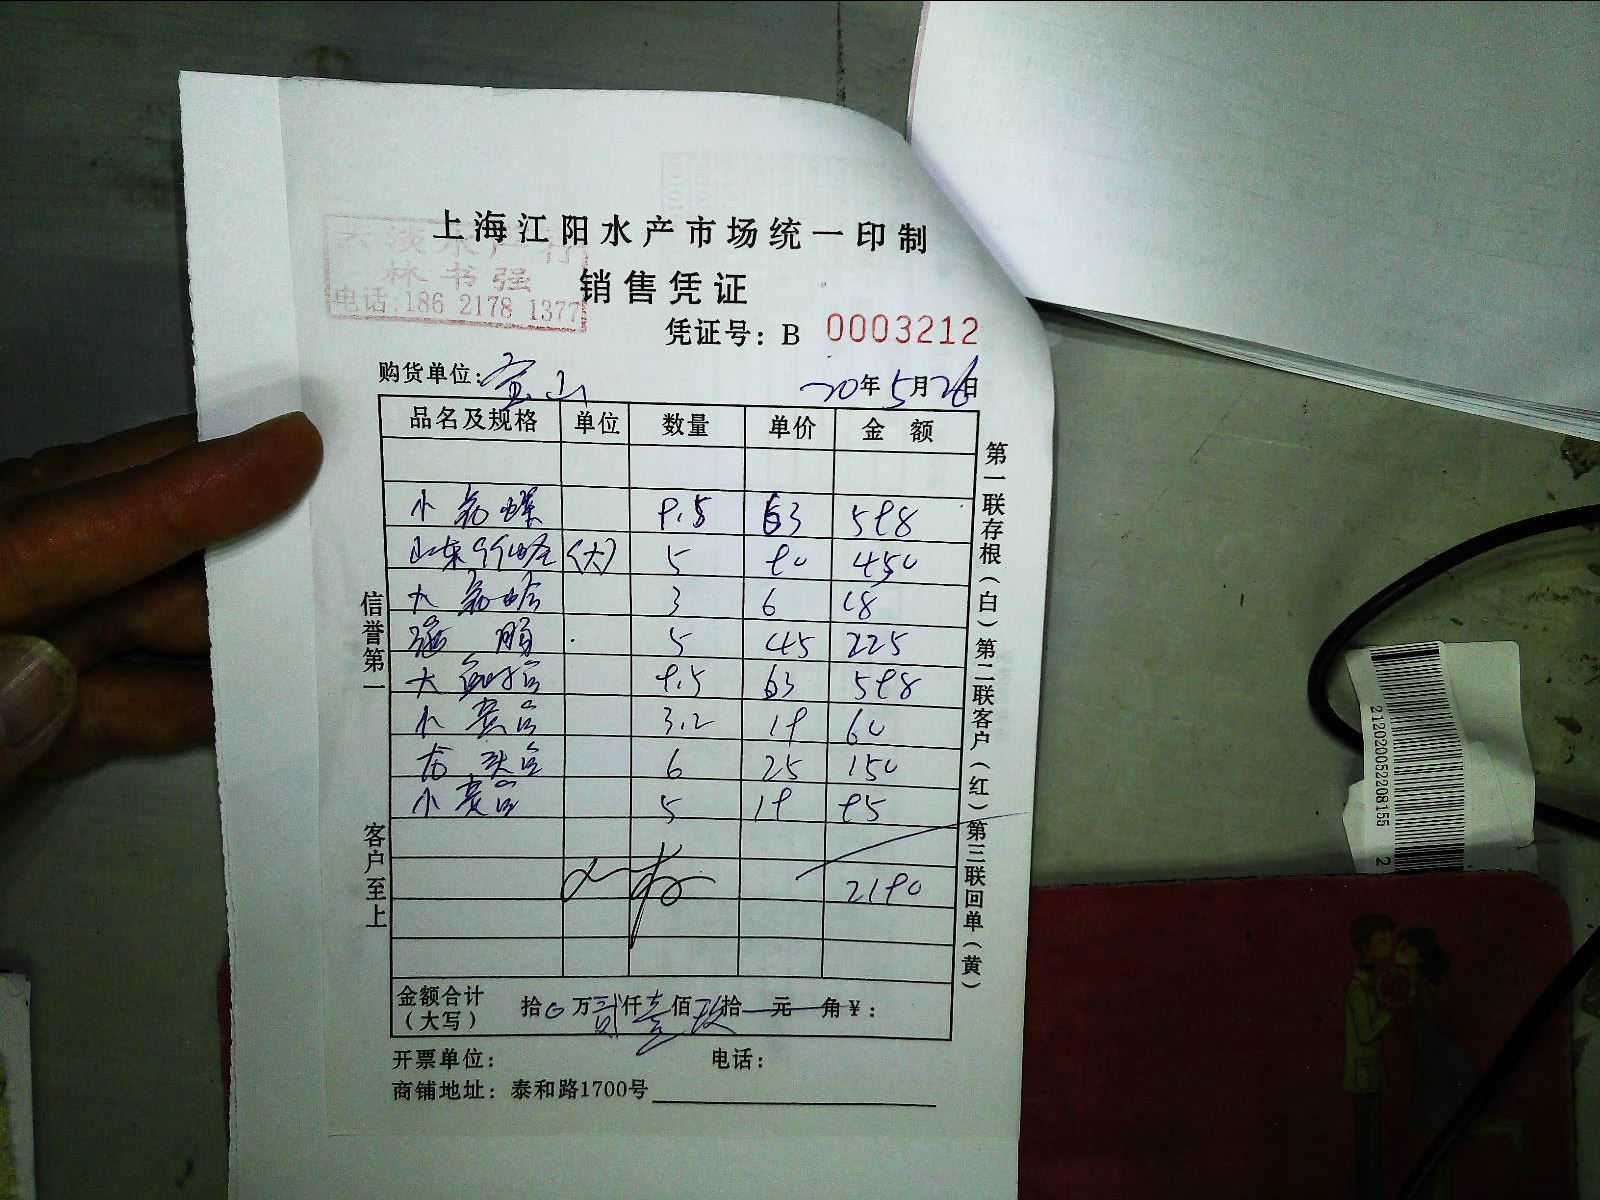 上海江阳水产市场统一印制
淡水产行
林书强
电话:186 2178 1377
销售凭证
凭证号：B 0003212
购货单位：宝山 20年5月26日
品名及规格 单位 数量 单价 金额
小 9.5 63 598
山东 (大) 5 90 450
大 3 6 18
5 45 225
大 9.5 63 598
小 3.2 19 60
龙头 6 25 150
小 5 19 95
2190
金额合计（大写） 拾0万贰仟壹佰玖拾元角¥：
开票单位： 电话：
商铺地址：泰和路1700号
信誉第一
客户至上
第一联存根(白)第二联客户(红)第三联回单(黄)
2120200522208155 2